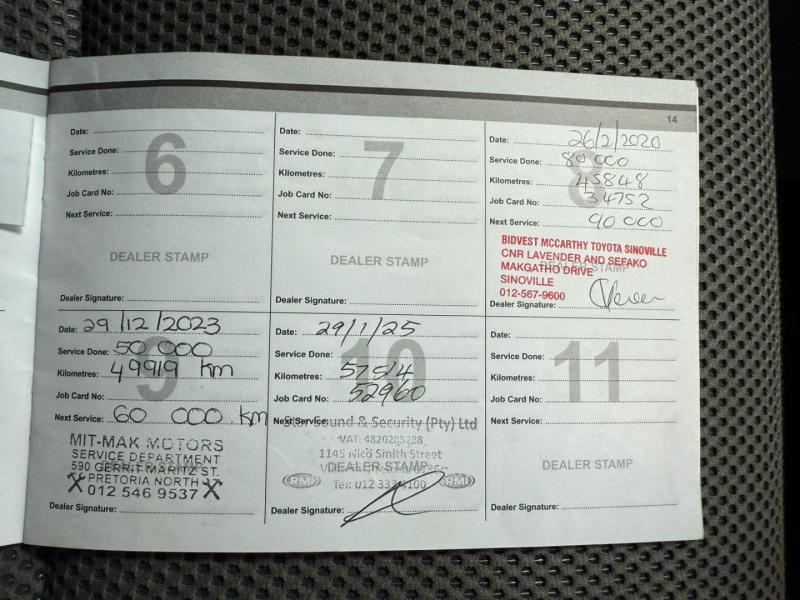 14
6
Date:
Service Done:
Kilometres:
Job Card No:
Next Service:
DEALER STAMP
Dealer Signature:
7
Date:
Service Done:
Kilometres:
Job Card No:
Next Service:
DEALER STAMP
Dealer Signature:
8
Date: 26/2/2020
Service Done: 80 000
Kilometres: 45848
Job Card No: 34752
Next Service: 90 000
DEALER STAMP
BIDVEST MCCARTHY TOYOTA SINOVILLE
CNR LAVENDER AND SEFAKO
MAKGATHO DRIVE
SINOVILLE
012-567-9600
Dealer Signature:
9
Date: 29/12/2023
Service Done: 50 000
Kilometres: 49919 km
Job Card No:
Next Service: 60 000 km
MIT-MAK MOTORS
SERVICE DEPARTMENT
590 GERRIT MARITZ ST.
PRETORIA NORTH
012 546 9537
Dealer Signature:
10
Date: 29/1/25
Service Done:
Kilometres: 57514
Job Card No: 52960
Next Service:
Sound & Security (Pty) Ltd
1145 Nico Smith Street
DEALER STAMP
RMI
RMI
Dealer Signature:
11
Date:
Service Done:
Kilometres:
Job Card No:
Next Service:
DEALER STAMP
Dealer Signature: